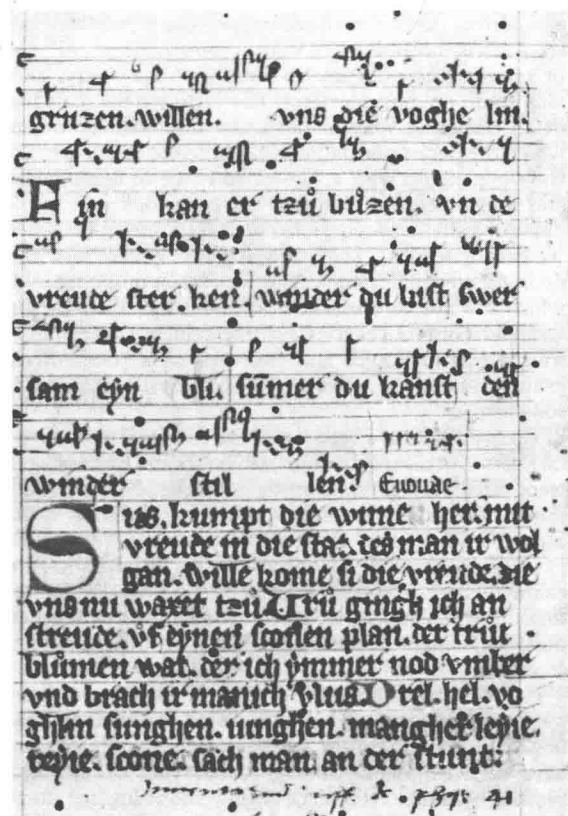 gruzen. willen. vns die voghe lin.
Ein kan er tzů bůzen. vn de
vreude ster. ken. winder du bist swer
sam eyn bli. sumer du kanst den
winder stil len. Euouae
Sus. kumpt die wnne her. mit
vreude in die stat. des man ir wol
gan. wille kome si die vreude. die
vns nu waxet tzů. Vrů gingh ich an
streude. vf eynen sconen plan. der trůt
blůmen wat. der ich ymmer
vnd brach ir manich
ghlin sunghen. iunghen. mangher leyie.
reyie. scone. sach man. an der stunt.